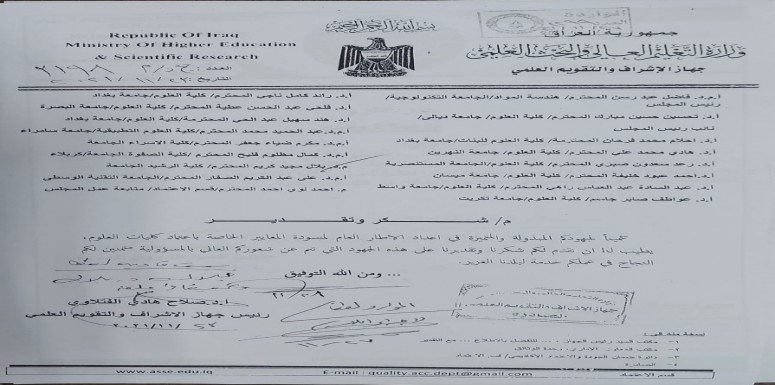 بسم الله الرحمن الرحيم
Republic Of Iraq
Ministry Of Higher Education
& Scientific Research
جمهورية العراق
وزارة التعليم العالي والبحث العلمي
جهاز الإشراف والتقويم العلمي
العدد:
التاريخ:
أ.م.د. فاضل عبد رسن المحترم/ هندسة المواد/الجامعة التكنولوجية/
رئيس المجلس
أ.د. تحسين حسين مبارك المحترم/ كلية العلوم/ جامعة ديالى/
نائب رئيس المجلس
أ.د. احلام محمد فرحان المحترمة/ كلية العلوم للبنات/جامعة بغداد
أ.د. هادي محمد علي المحترم/ كلية العلوم/ جامعة النهرين
أ.د. رعد سعدون صبري المحترم/ كلية العلوم/ الجامعة المستنصرية
أ.د. احمد عبود خليفة المحترم/ كلية العلوم/ جامعة ميسان
أ.د. عبد السادة عبد العباس راهي المحترم/ كلية العلوم/جامعة واسط
أ.د. عواطف صابر جاسم/ كلية العلوم/جامعة تكريت
أ.د. رائد كامل ناجي المحترم/ كلية العلوم/ جامعة بغداد
أ.د. فلحي عبد الحسن عطية المحترم/ كلية العلوم/جامعة البصرة
أ.د. هند سهيل عبد الحي المحترمة/كلية العلوم/جامعة بغداد
أ.م.د. عبد الحميد محمد المحترم/كلية العلوم التطبيقية/جامعة سامراء
أ.د. مكرم ضياء جعفر المحترم/كلية الاسراء الجامعة
أ.د. كمال مظلوم فليح المحترم/ كلية الصفوة الجامعة/كربلاء
بلال مجيد كريم المحترم/ كلية الرشيد الجامعة
أ.م.د. علي عبد الكريم الصفار المحترم/ الجامعة التقنية الوسطى
م. احمد لوي احمد المحترم/قسم الاعتماد/ متابعة عمل المجلس
م/ شكر وتقدير
تثميناً لجهودكم المبذولة والمتميزة في اعداد الاطار العام لمسودة المعايير الخاصة باعتماد كليات العلوم.
يطيب لنا ان نتقدم لكم شكرنا وتقديرنا على هذه الجهود التي تنم عن شعوركم العالي بالمسؤولية متمنين لكم
النجاح في عملكم خدمة لبلدنا العزيز.
... ومن الله التوفيق
أ.د. صلاح هادي الفتلاوي
رئيس جهاز الاشراف والتقويم العلمي
جهاز الاشراف والتقويم العلمي
الصادرة
نسخة منه الى:
www.asse.edu.iq
E-mail : quality.acc.dept@gmail.com
قسم الاعتماد